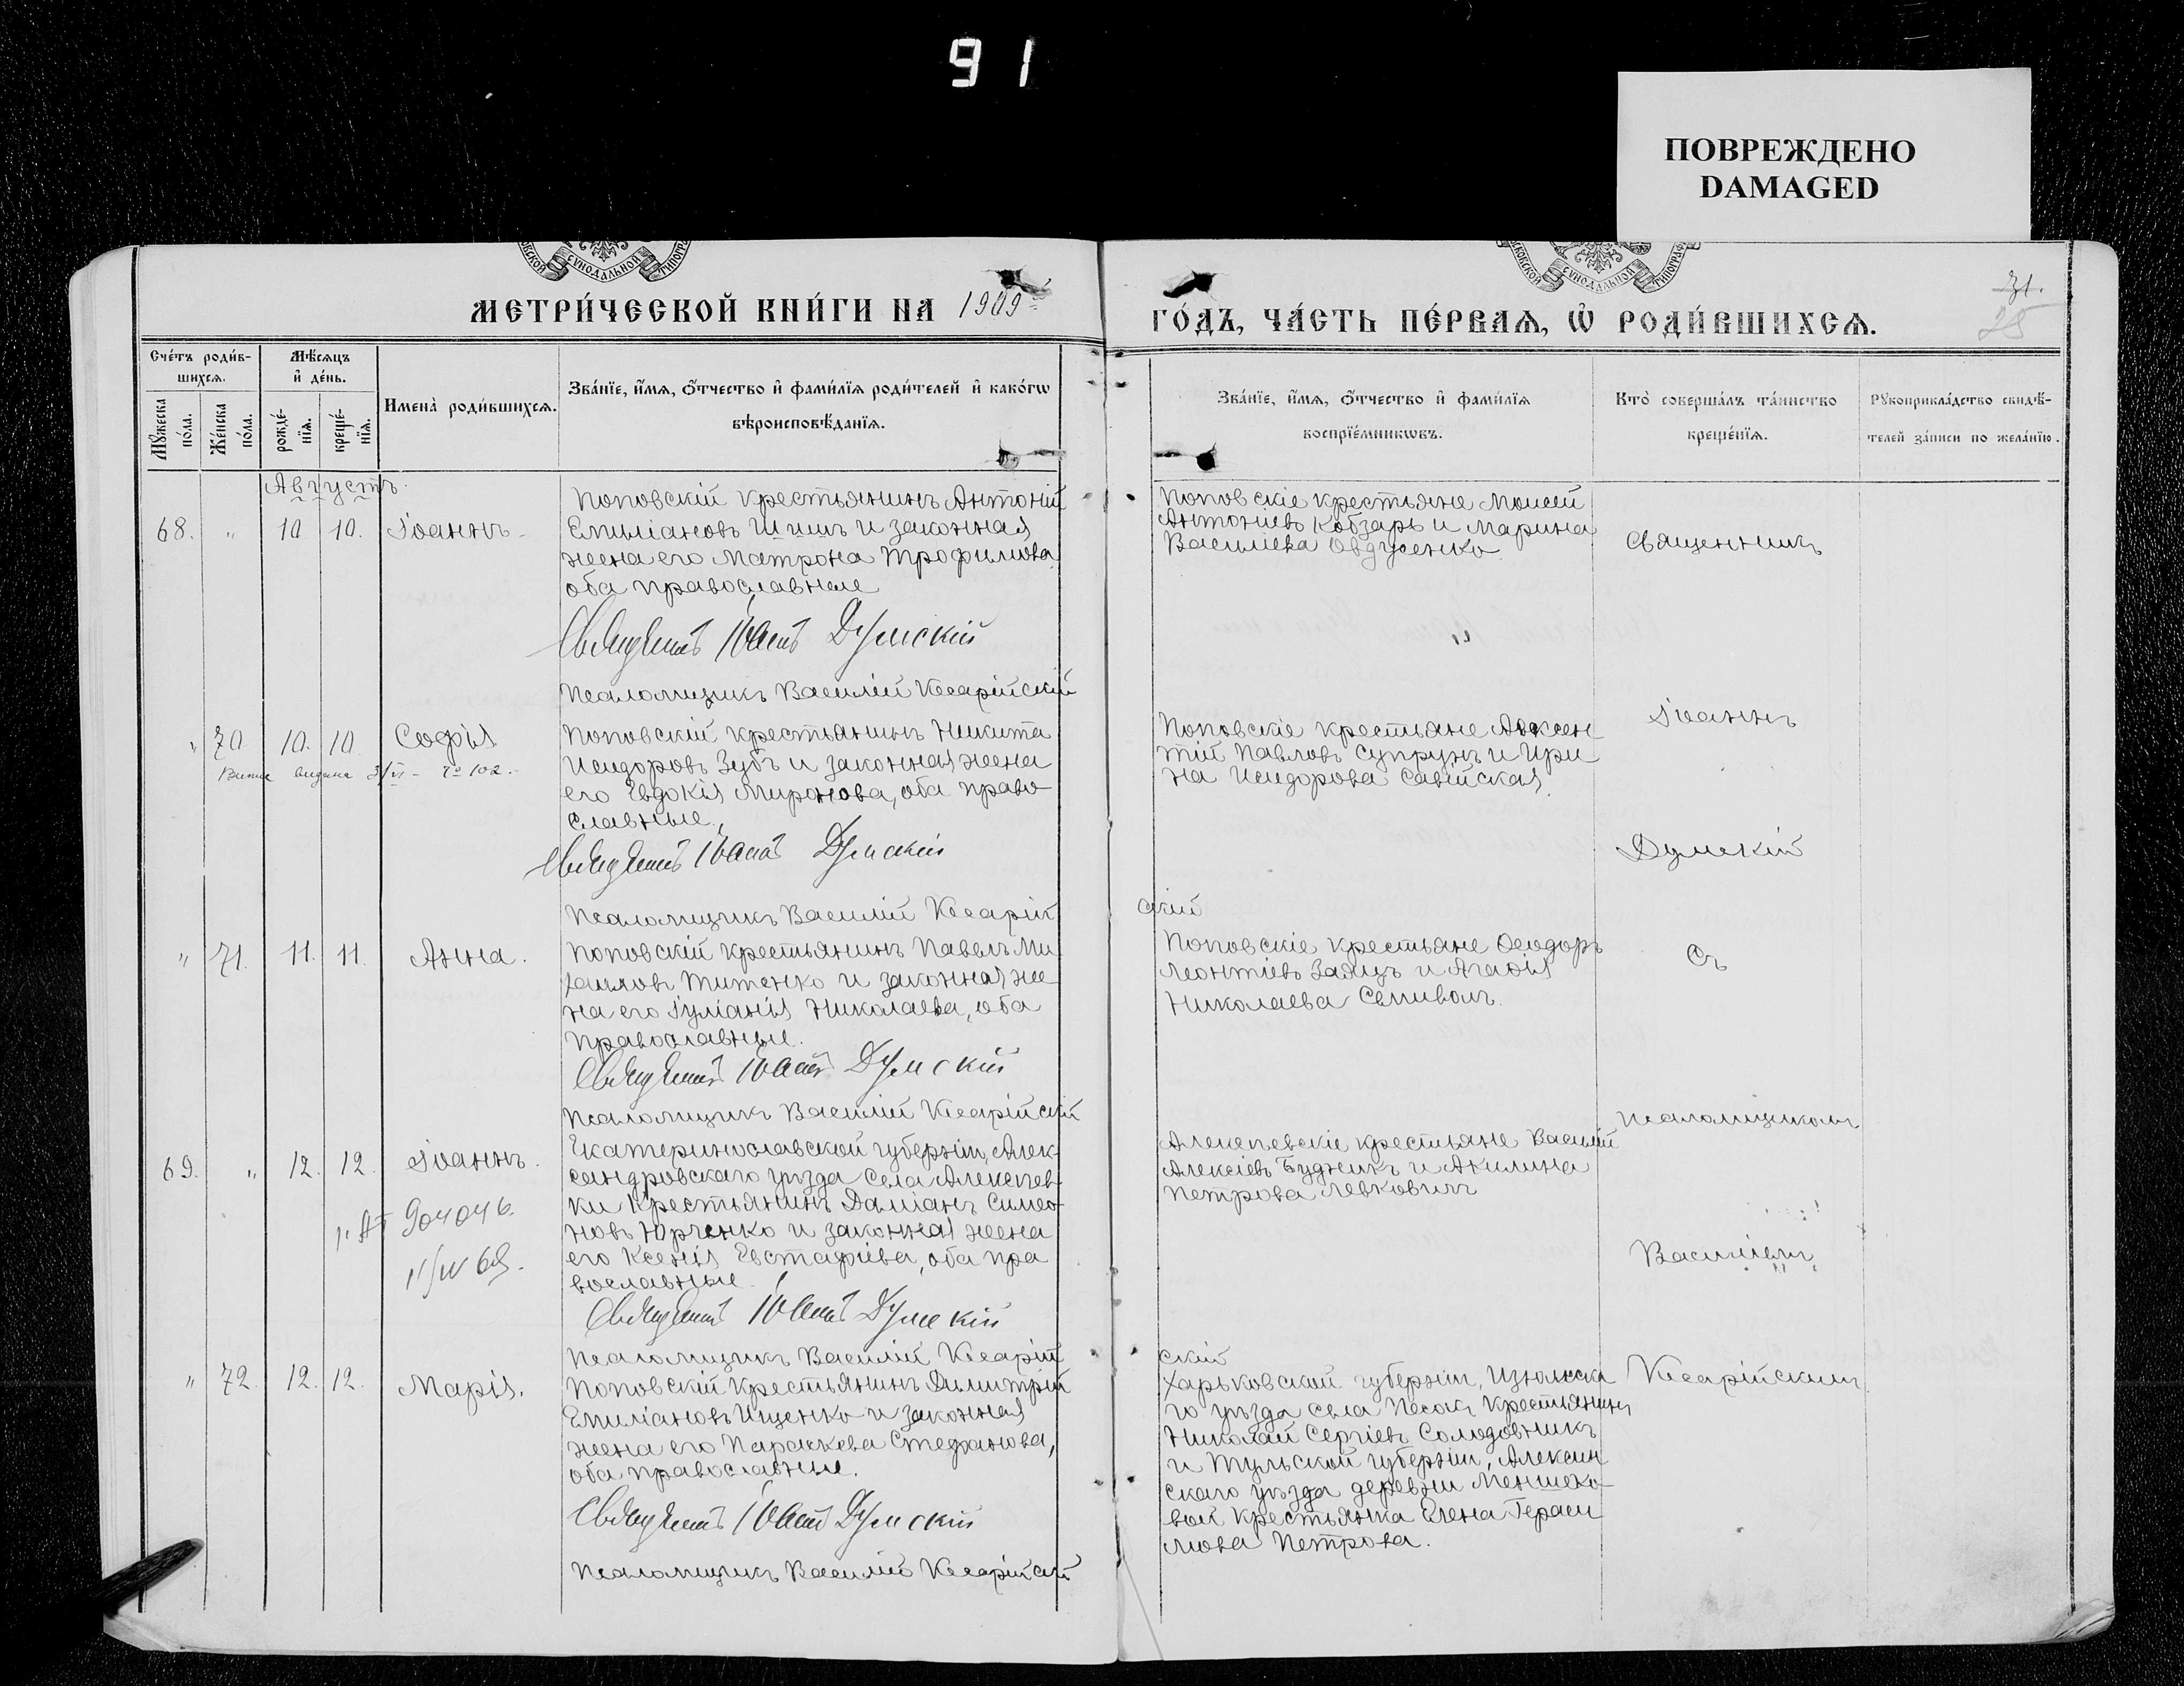 91
ПОВРЕЖДЕНО
DAMAGED
СУНОДАЛЬНОЙ
СУНОДАЛЬНОЙ
МЕТРИ́ЧЕСКОЙ КНИ́ГИ НА 1909
ГО́ДЪ, ЧА́СТЬ ПЕ́РВАЯ, Ѡ РОДИ́ВШИХСЯ.
31.
25
Сче́тъ роди́в-
шихся.
Мѣ́сяцъ
и де́нь.
Мꙋжеска
по́ла.
Же́нска
по́ла.
рожде́-
нїя.
креще́-
нїя.
Имена̀ роди́вшихся.
Зва́нїе, и́мя, ѻ́тчество и фами́лїя роди́телей и како́гѡ
вѣроисповѣ́данїя.
Зва́нїе, и́мя, ѻ́тчество и фами́лїя
воспрїе́мникѡвъ.
Кто̀ соверша́лъ та́инство
креще́нїя.
Рꙋкоприкла́дство свидѣ́-
телей за́писи по жела́нїю.
Августъ.
68. " 10 10. Іоаннъ.
Поповскій крестьянинъ Антоній
Емиліановъ Шишъ и законная
жена его Матрона Трофимова
оба православные
Священникъ Іоаннъ Думскій
Псаломщикъ Василій Кесарійскій
Поповскіе крестьяне Моисей
Антоніевъ Кобзарь и Марина
Василіева Овдусенко
Священникъ
" 70 10. 10. Софія
3/VI - № 102.
Поповскій крестьянинъ Никита
Исидоровъ Зубъ и законная жена
его Евдокія Миронова, оба право
славные.
Священникъ Іоаннъ Думскій
Псаломщикъ Василій Кесарій
скій
Поповскіе крестьяне Авксен
тій Павловъ Супрунъ и Ири
на Исидорова Савійская
Іоаннъ
Думскій
" 71. 11. 11. Анна.
Поповскій крестьянинъ Павелъ Ми
хаиловъ Титенко и законная же
на его Іуліанія Николаева, оба
православные.
Священникъ Іоаннъ Думскій
Псаломщикъ Василій Кесарійскій
Поповскіе крестьяне Ѳеодоръ
Леонтіевъ Заяцъ и Агаѳія
Николаева Семиволъ.
Съ
69. " 12. 12. Іоаннъ.
904046.
Екатеринославской губерніи, Алек-
сандровскаго уѣзда села Алексѣев-
ки крестьянинъ Даміанъ Симео-
новъ Юрченко и законная жена
его Ксенія Евстафіева, оба пра
вославные.
Священникъ Іоаннъ Думскій
Псаломщикъ Василій Кесарій
скій
Алексѣевскіе крестьяне Василій
Алексіевъ Будникъ и Акилина
Петрова Левковичъ
Псаломщикомъ
Василіемъ
" 72. 12. 12. Марія.
Поповскій крестьянинъ Димитрій
Емиліановъ Ищенко и законная
жена его Параскева Стефанова,
оба православные.
Священникъ Іоаннъ Думскій
Псаломщикъ Василій Кесарійскій
Харьковской губерніи, Изюмска
го уѣзда села Песокъ крестьянинъ
Николай Сергіевъ Солодовникъ
и Тульской губерніи, Алексин
скаго уѣзда деревни Меншеко-
вой крестьянка Елена Гераси
мова Петрова.
Кесарійскимъ